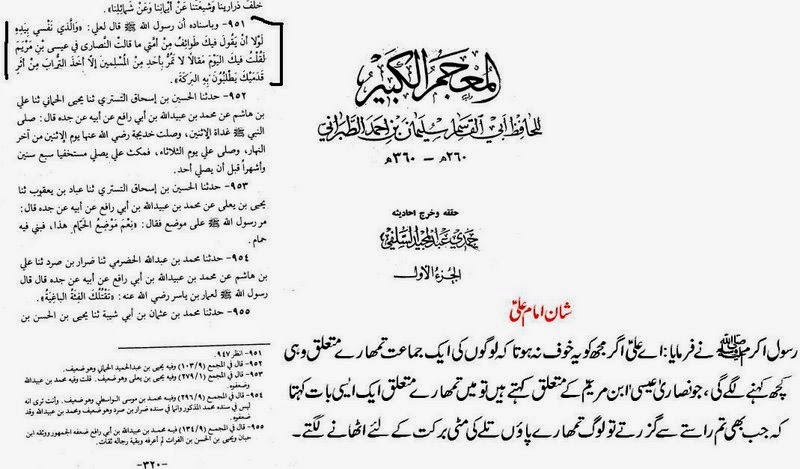 خلف ذرارينا وشيعتنا عن أيماننا وعن شمائلنا».
٩٥١- وبإسناده أن رسول الله ﷺ قال لعلي: «وَالَّذِي نَفْسِي بِيَدِهِ
لَوْلَا أَنْ يَقُولَ فِيكَ طَوَائِفُ مِنْ أُمَّتِي مَا قالَتْ النَّصَارى فِي عِيسى بْنِ مَرْيَمَ
لَقُلْتُ فِيكَ الْيَوْمَ مَقَالًا لَا تَمُرُّ بِأَحَدٍ مِنَ الْمُسْلِمينَ إلَّا أخَذَ التُّرابَ مِنْ أَثَرِ
قَدَمَيْكَ يَطْلُبُونَ بِهِ الْبَرَكَةَ».
٩٥٢- حدثنا الحسين بن إسحاق التستري ثنا يحيى الحماني ثنا علي
بن هاشم عن محمد بن عبيدالله بن أبي رافع عن أبيه عن جده قال: صلى
النبي ﷺ غداة الإثنين، وصلت خديجة رضي الله عنها يوم الإثنين من آخر
النهار، وصلى علي يوم الثلاثاء، فمكث علي يصلي مستخفيا سبع سنين
وأشهراً قبل أن يصلي أحد.
٩٥٣- حدثنا الحسين بن إسحاق التستري ثنا عباد بن يعقوب ثنا
يحيى بن يعلى عن محمد بن عبيدالله بن أبي رافع عن أبيه عن جده قال:
مر رسول الله ﷺ على موضع فقال: «نِعْمَ مَوْضِعُ الْحَمَّامِ هذا، فبني فيه
حمام.
٩٥٤- حدثنا محمد بن عبدالله الحضرمي ثنا ضرار بن صرد ثنا علي
بن هاشم عن محمد بن عبيدالله بن أبي رافع عن أبيه عن جده قال قال
رسول الله ﷺ لعمار بن ياسر رضي الله عنه: «تَقْتُلُكَ الفِئَةُ الباغِيَةُ».
٩٥٥- حدثنا محمد بن عثمان بن أبي شيبة ثنا يحيى بن الحسن بن
٩٥١- انظر ٩٤٧.
٩٥٢- قال في المجمع (١٠٣/٩) وفيه يحيى بن عبدالحميد الحماني وهو ضعيف.
٩٥٣- قال في المجمع (٢٧٩/١) وفيه يحيى بن يعلى وهو ضعيف. قلت وفيه محمد بن عبيدالله
وضعفوه.
٩٥٤- قال في المجمع (٢٩٦/٩) وفيه محمد بن موسى الواسطي وهو ضعيف. وأنت ترى انه
ليس في سنده محمد المذكور وانما في سنده ضرار بن صرد وهو ضعيف ومحمد بن عبيدالله وقد
ضعفوه
٩٥٥- قال في المجمع (١٣٤/٩) وفيه محمد بن عبيدالله بن أبي رافع ضعفه الجمهور ووثقه ابن
حبان ويحيى بن الحسن بن الفرات لم أعرفه وبقية رجاله ثقات.
-٣٢٠-
المعجم الكبير
للحافظ أبي القاسم سليمان بن أحمد الطبراني
٢٦٠ه‍ – ٣٦٠ه‍
حققه وخرج احاديثه
حمدي عبد المجيد السلفي
الجزء الأول
شان امام علیؑ
رسول اکرم ﷺ نے فرمایا: اے علیؑ اگر مجھ کو یہ خوف نہ ہوتا کہ لوگوں کی ایک جماعت تمھارے متعلق وہی
کچھ کہنے لگے گی، جو نصاریٰ عیسیٰ ابن مریمؑ کے متعلق کہتے ہیں تو میں تمھارے متعلق ایک ایسی بات کہتا
کہ جب بھی تم راستے سے گزرتے تو لوگ تمھارے پاؤں تلے کی مٹی برکت کے لئے اٹھانے لگتے۔